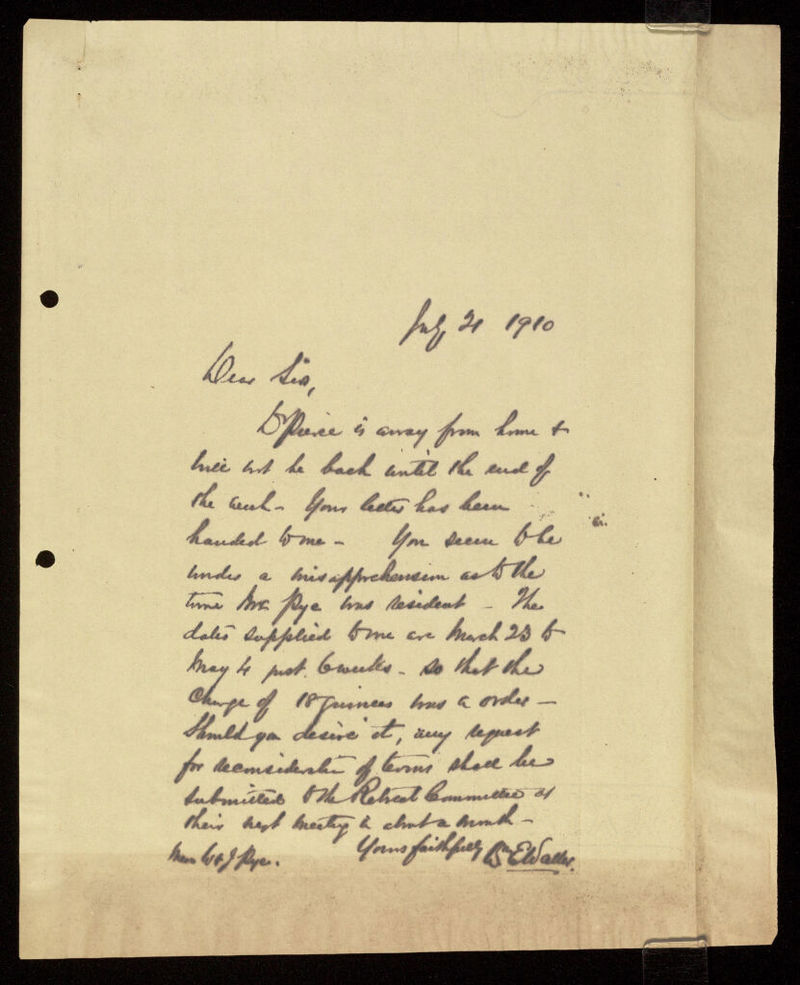 July 21 1910
Dear Sirs,
Dr Pierce is away from home &
will not be back until the end of
the week - Your letter has been
handed to me - You seem to be
under a misapprehension as to the
time Mr Pye was resident - The
dates supplied to me are March 23 to
May 4 just 6 weeks - so that the
Charge of 18 guineas was in order -
Should you desire it, any request
for reconsideration of terms shall be
submitted to the Retreat Committee at
their next meeting in about a month -
Yours faithfully
Messrs W & J Pye.